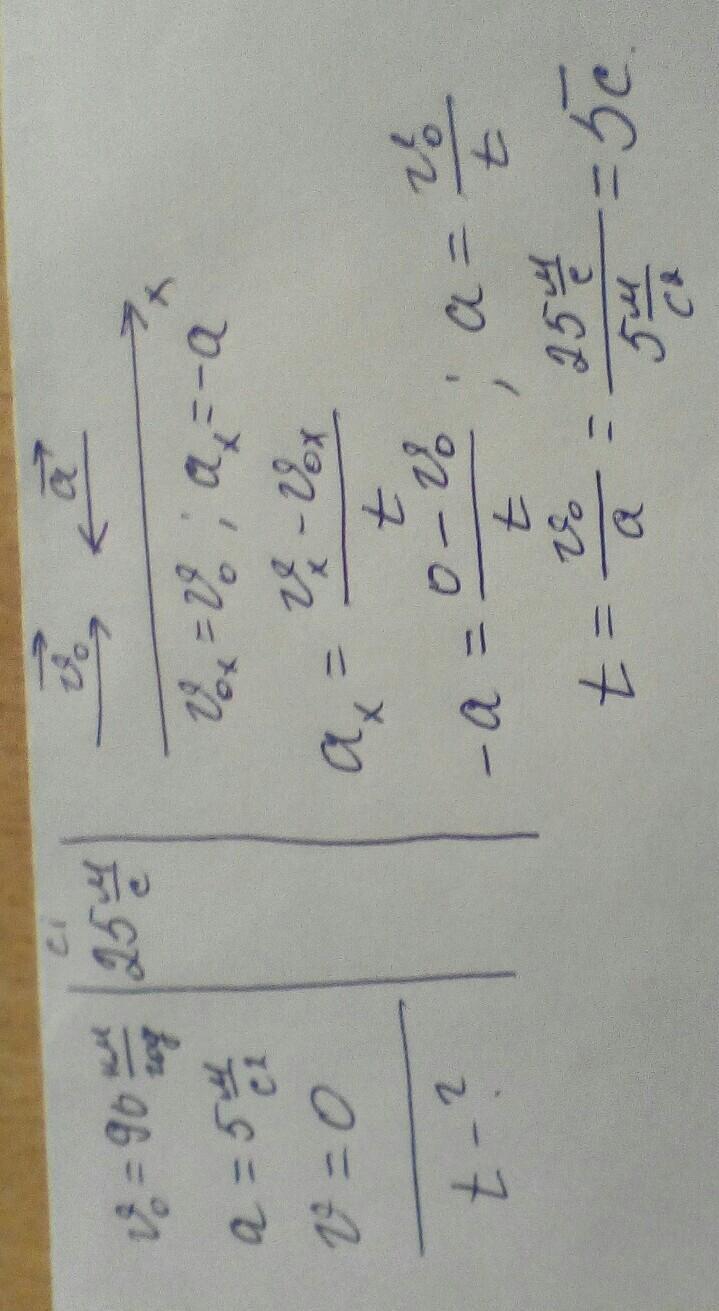 СІ
v₀ = 90 км/год
25 м/с
a = 5 м/с²
v = 0
t - ?
v⃗₀ a⃗
x
v₀ₓ = v₀ ; aₓ = -a
aₓ = (vₓ - v₀ₓ)/t
-a = (0 - v₀)/t ; a = v₀/t
t = v₀/a = (25 м/с)/(5 м/с²) = 5с.